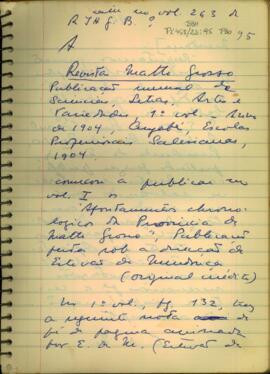 saiu no vol. 263 da
R.I.H.G.B. ?
BBH
95
A
Revista Matto Grosso
Publicação mensal de
Sciencias, Letras, Artes e
Variedades, 1º vol. - Anno
de 1904, Cuyabá, Escolas
Profissionais Salesianas,
1904.
começou a publicar no
vol. I os
Apontamentos chrono-
logicos da Provincia de
Matto Grosso, Publicação
feita sob a direcção de
Estevão de Mendonça
(original inédito)
No 1º vol., pg. 132, traz
a seguinte nota de
pé de pagina assinada
por E. de M. (Estevão de